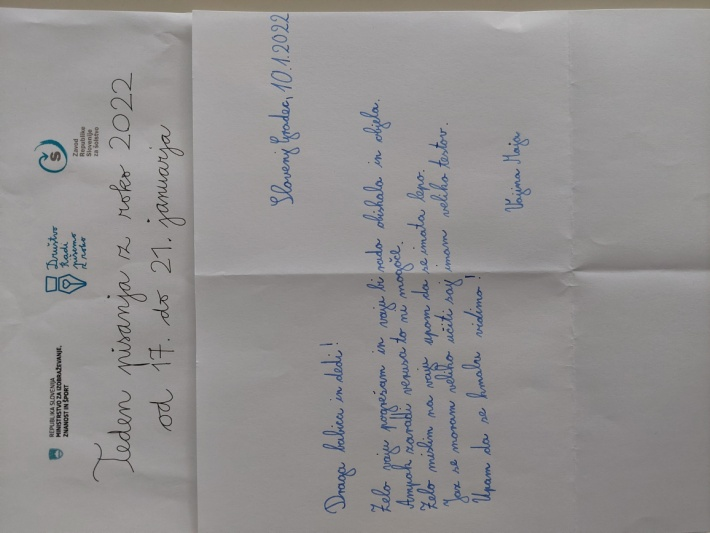 REPUBLIKA SLOVENIJA
MINISTRSTVO ZA IZOBRAŽEVANJE,
ZNANOST IN ŠPORT
Društvo
Radi
pišemo
z roko
Zavod
Republike
Slovenije
za šolstvo
Teden pisanja z roko 2022
od 17. do 21. januarja
Slovenj Gradec, 10.1.2022
Draga babica in dedi!
Zelo vaju pogrešam in vaju bi rada obiskala in objela.
Ampak zaradi virusa to ni mogoče.
Zelo mislim na vaju upam da se imata lepo.
Jaz se moram veliko učiti saj imam veliko testov.
Upam da se kmalu vidimo!
Vajina Maja